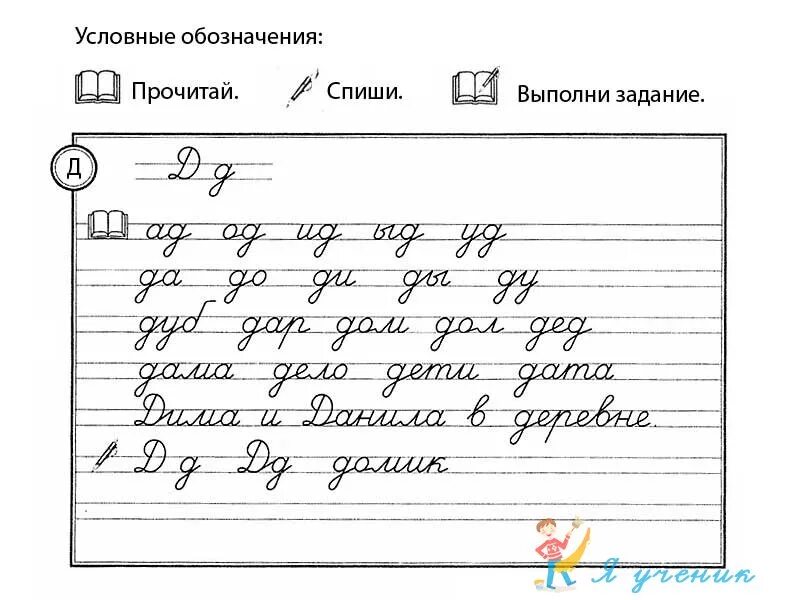 Условные обозначения:
Прочитай. Спиши. Выполни задание.
Д
Д д
ад од ид ыд уд
да до ди ды ду
дуб дар дом дол дед
дама дело дети дата
Дима и Данила в деревне.
Д д Дд домик
Я ученик